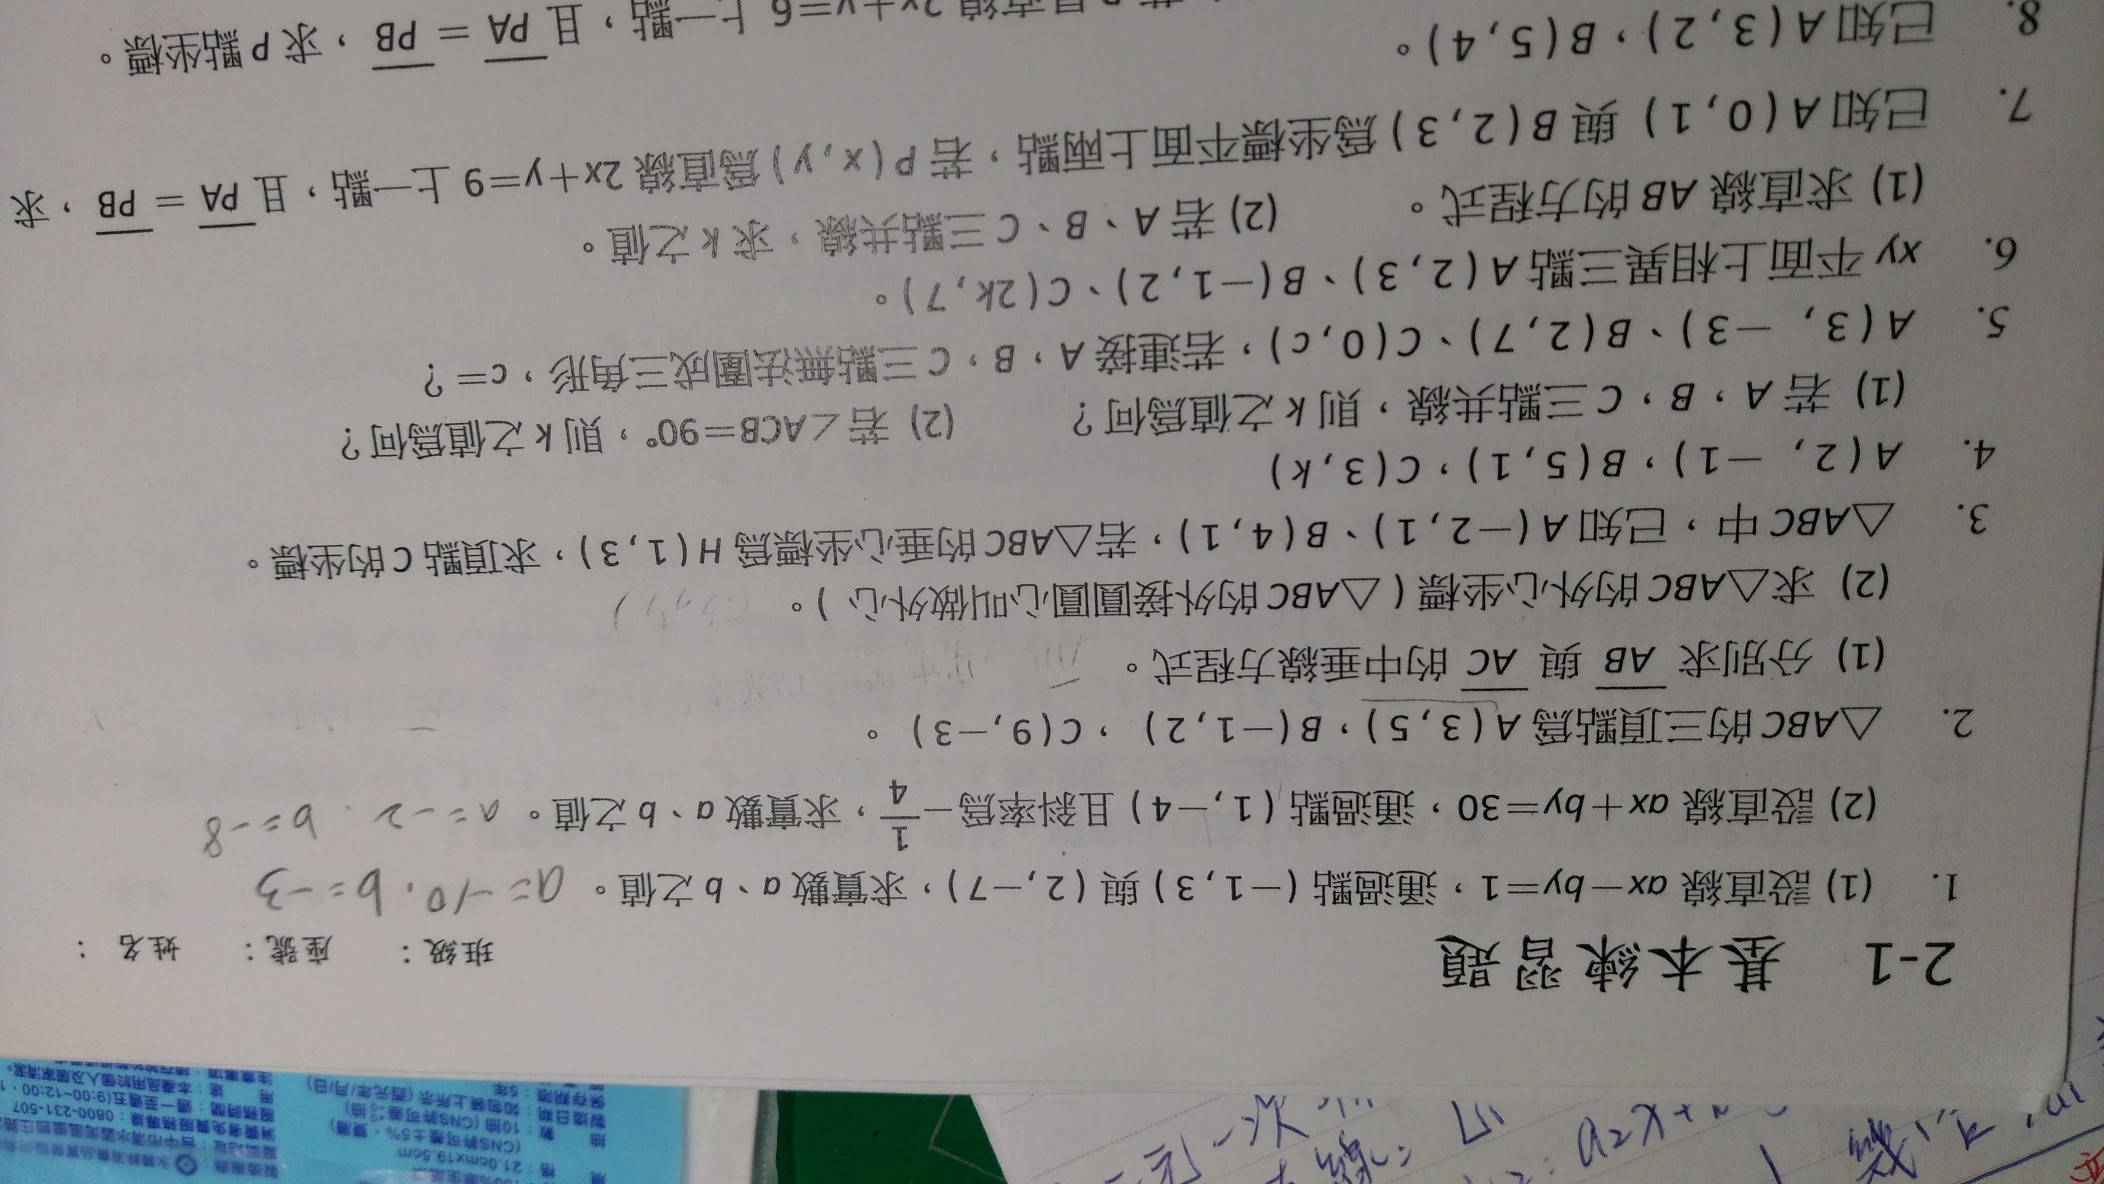 2-1 基本練習題
班級： 座號： 姓名：
1. (1) 設直線 ax−by=1，通過點 (−1,3) 與 (2,−7)，求實數 a、b 之值。 a=-10, b=-3
(2) 設直線 ax+by=30，通過點 (1,−4) 且斜率為 −1/4，求實數 a、b 之值。 a=-2. b=-8
2. △ABC 的三頂點為 A(3,5)，B(−1,2)，C(9,−3)。
(1) 分別求 AB 與 AC 的中垂線方程式。
(2) 求△ABC 的外心坐標（△ABC 的外接圓圓心叫做外心）。
3. △ABC 中，已知 A(−2,1)、B(4,1)，若△ABC 的垂心坐標為 H(1,3)，求頂點 C 的坐標。
4. A(2, −1)，B(5,1)，C(3,k)
(1) 若 A，B，C 三點共線，則 k 之值為何？ (2) 若∠ACB=90°，則 k 之值為何？
5. A(3, −3)、B(2,7)、C(0,c)，若連接 A，B，C 三點無法圍成三角形，c=？
6. xy 平面上相異三點 A(2,3)、B(−1,2)、C(2k,7)。
(1) 求直線 AB 的方程式。 (2) 若 A、B、C 三點共線，求 k 之值。
7. 已知 A(0,1) 與 B(2,3) 為坐標平面上兩點，若 P(x,y) 為直線 2x+y=9 上一點，且 PA = PB，求
8. 已知 A(3,2)，B(5,4)。
直線 2x+y=6 上一點，且 PA = PB，求 P 點坐標。